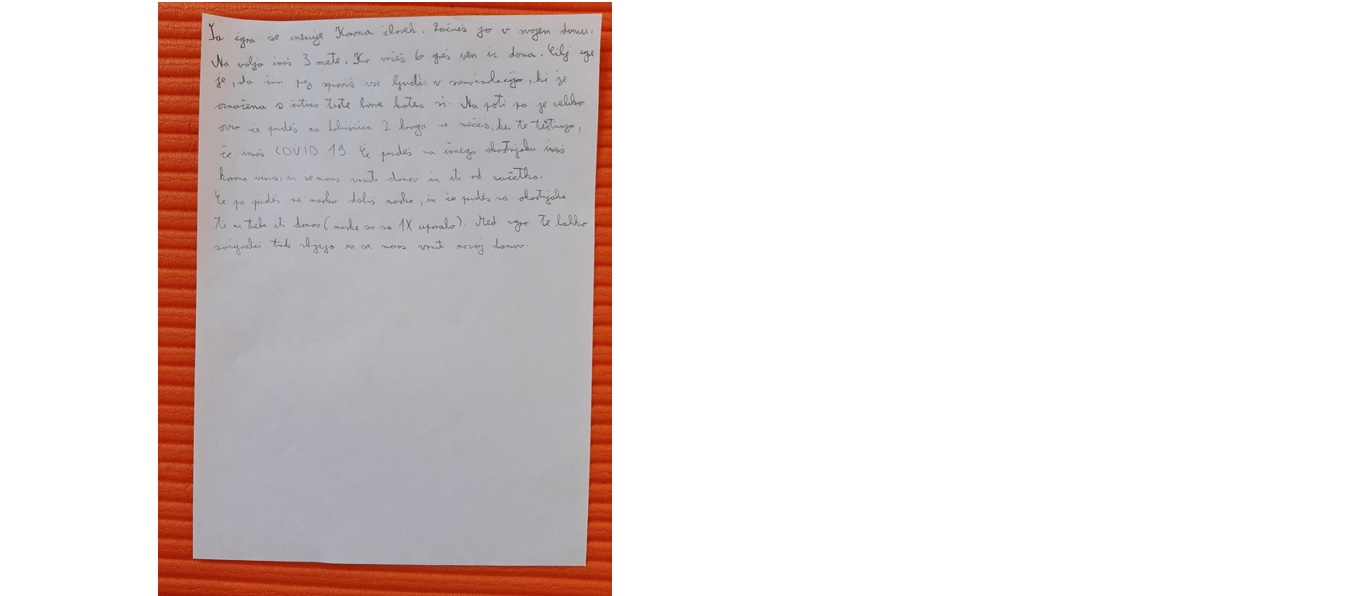 Ta igra se imenuje Korona človek. Začneš jo v svojem domu.
Na voljo imaš 3 mete. Ko vržeš 6 greš ven iz doma. Cilj igre
je, da čim prej spraviš vse ljudi v samoizolacijo, ki je
označena s črtico tiste barve katera si. Na poti pa je veliko
ovir če prideš na bolnišnico 2 kroga ne mečeš, ker te testirajo,
če imaš COVID 19. Če prideš na črnega okoštnjaka imaš
korona virus in se moraš vrniti domov in iti od začetka.
Če pa prideš na masko dobiš masko, in če prideš na okostnjaka
ti ni treba iti domov (maske so za 1X uporabo). Med igro te lahko
soigralci tudi zbijejo in se moraš vrniti nazaj domov.